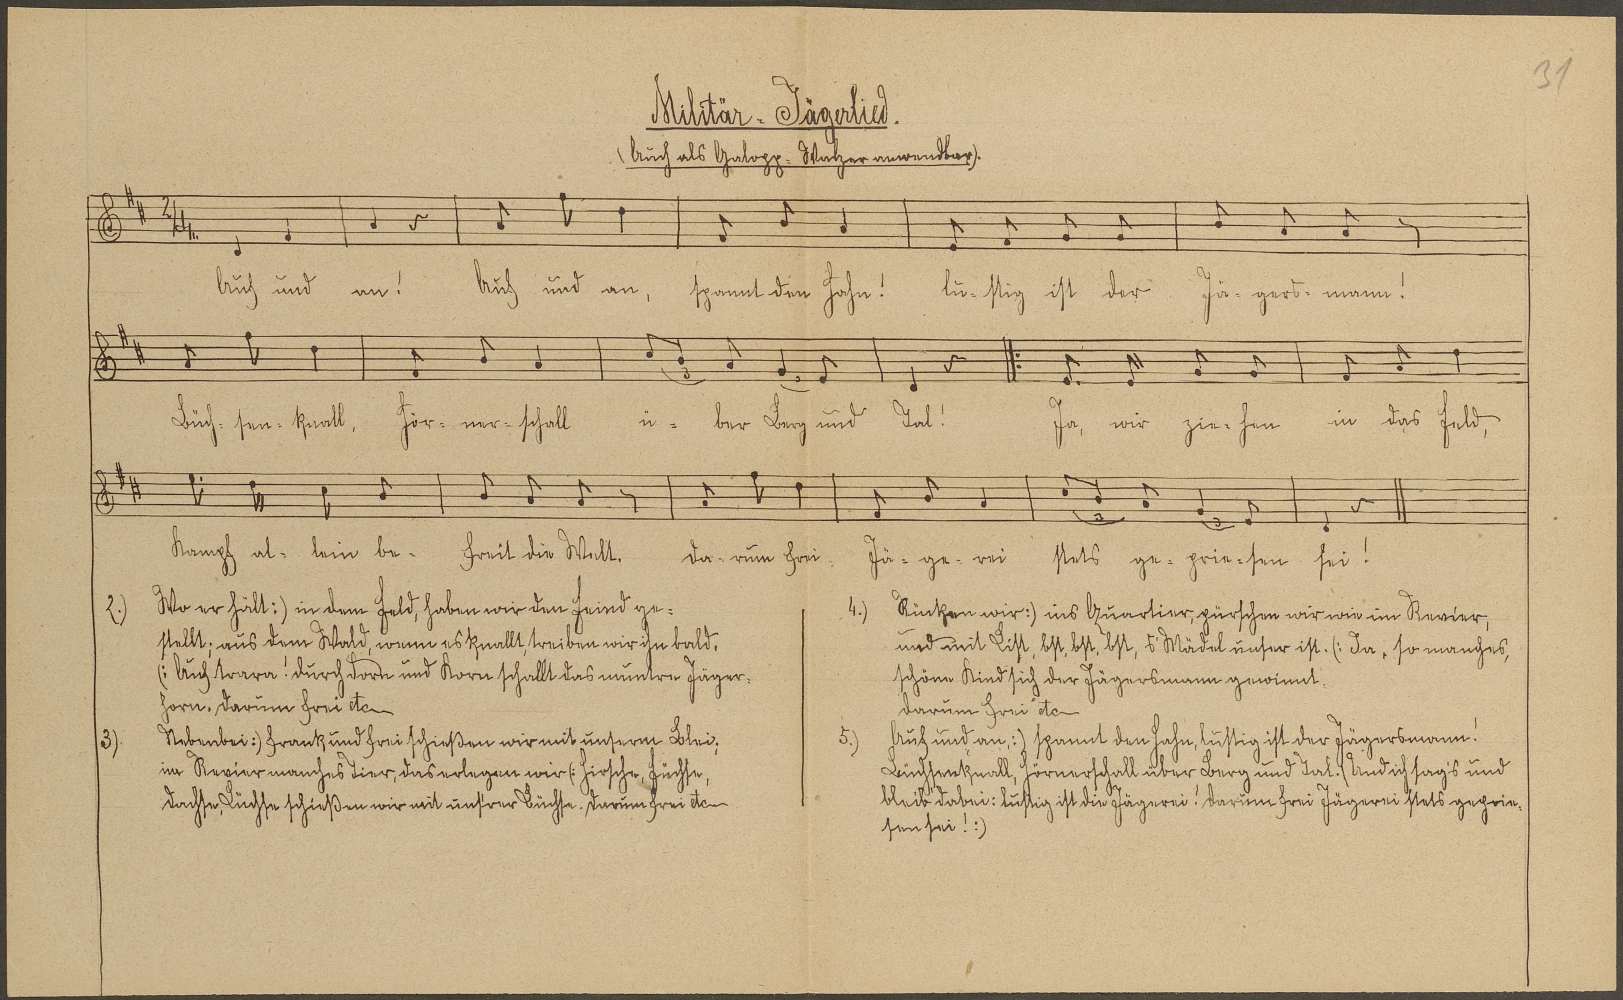 31
Militär-Jägerlied.
(Auch als Galopp-Walzer anwendbar).
2/4
Auf und an! Auf und an, spannt den Hahn! lu-stig ist der Jä-gers-mann!
Büch-sen-knall, Hör-ner-schall ü-ber Berg und Tal! Ja, wir zie-hen in das Feld,
3
Kampf al-lein be-freit die Welt. Da-rum frei Jä-ge-rei stets ge-prie-sen sei!
3 3
2.) Wo er hält:) in dem Feld, haben wir den Feind ge-
stellt; aus dem Wald, wenn es knallt, treiben wir ihn bald.
(: Auf trara! durch Dorn und Korn schallt das muntre Jäger-
horn. Darum frei etc
3.) Nebenbei:) Frank und frei schießen wir mit unserm Blei;
im Revier manches Tier, das erlegen wir (: Hirsche, Füchse,
Dachse, Lüchse schießen wir mit unsrer Büchse. Darum frei etc
4.) Rücken wir:) ins Quartier, pürschen wir wie im Revier,
und mit List, bst, bst, bst, s'Mädel unser ist. (: Ja, so manches,
schöne Kind sich der Jägersmann gewinnt.
Darum frei etc
5.) Auf und an,:) spannt den Hahn, lustig ist der Jägersmann!
Büchsenknall, Hörnerschall über Berg und Tal. (Und ich sag's und
bleib dabei: lustig ist die Jägerei! Darum frei Jägerei stets geprie-
sen sei! :)